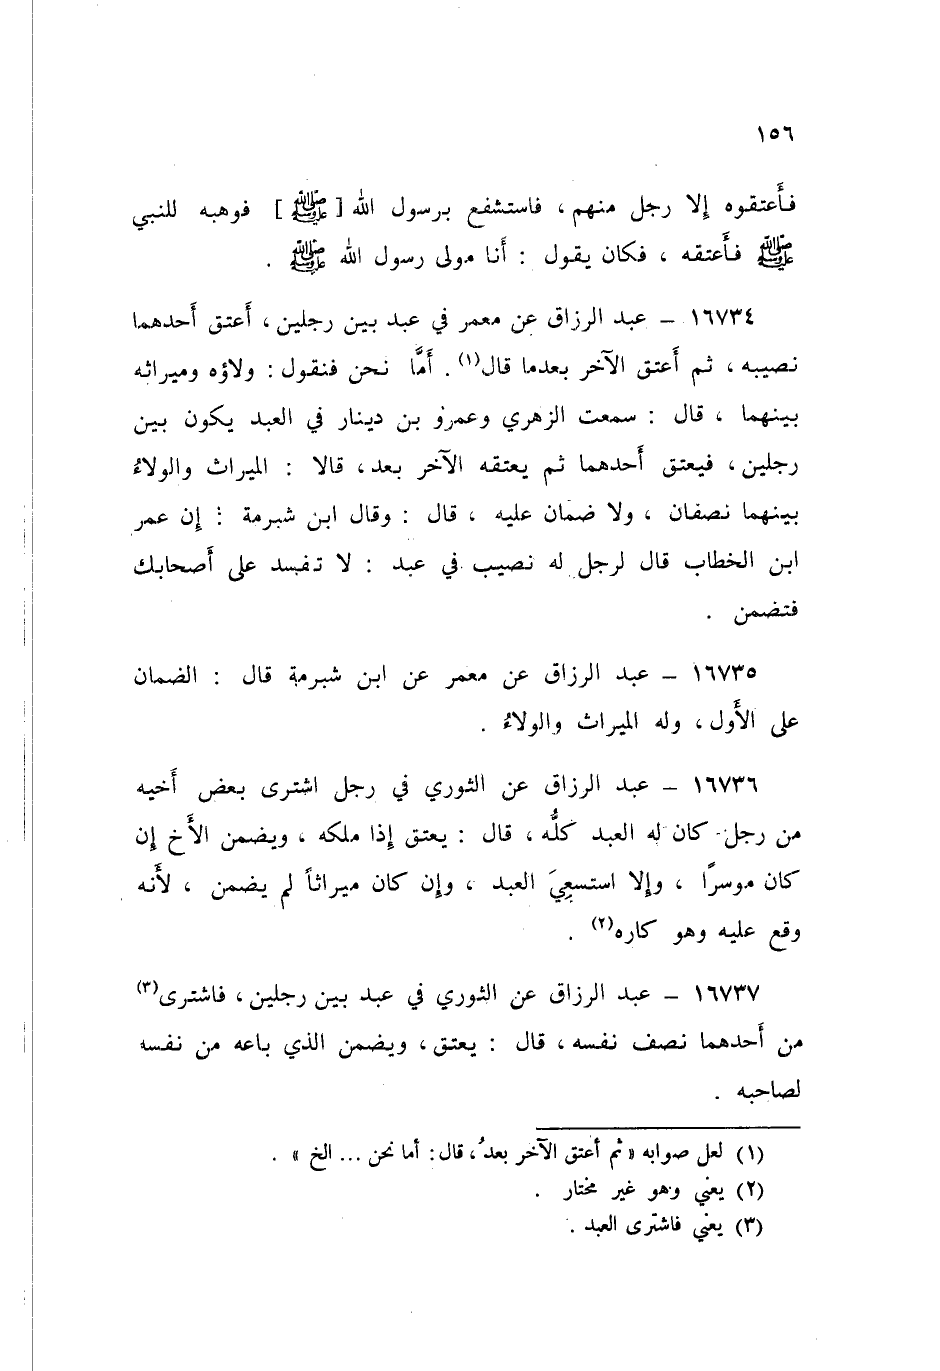 ١٥٦
فأَعتقوه إلا رجل منهم ، فاستشفع برسول الله [ ﷺ ] فوهبه للنبي
ﷺ فأَعتقه ، فكان يقول : أَنا مولى رسول الله ﷺ .
١٦٧٣٤ – عبد الرزاق عن معمر في عبد بين رجلين ، أَعتق أَحدهما
نصيبه ، ثم أَعتق الآخر بعدما قال(١) . أَمَّا نحن فنقول : ولاؤه وميراثه
بينهما ، قال : سمعت الزهري وعمرو بن دينار في العبد يكون بين
رجلين ، فيعتق أَحدهما ثم يعتقه الآخر بعد ، قالا : الميراث والولاءُ
بينهما نصفان ، ولا ضمان عليه ، قال : وقال ابن شبرمة : إن عمر
ابن الخطاب قال لرجل له نصيب في عبد : لا تفسد على أَصحابك
فتضمن .
١٦٧٣٥ – عبد الرزاق عن معمر عن ابن شبرمة قال : الضمان
على الأَول ، وله الميراث والولاءُ .
١٦٧٣٦ – عبد الرزاق عن الثوري في رجل اشترى بعض أَخيه
من رجل كان له العبد كلُّه ، قال : يعتق إذا ملكه ، ويضمن الأَخ إن
كان موسرًا ، وإلا استسعِيَ العبد ، وإن كان ميراثاً لم يضمن ، لأَنه
وقع عليه وهو كاره(٢) .
١٦٧٣٧ – عبد الرزاق عن الثوري في عبد بين رجلين ، فاشترى(٣)
من أَحدهما نصف نفسه ، قال : يعتق ، ويضمن الذي باعه من نفسه
لصاحبه .
(١) لعل صوابه « ثم أعتق الآخر بعدُ ، قال : أما نحن ... الخ » .
(٢) يعني وهو غير مختار .
(٣) يعني فاشترى العبد .